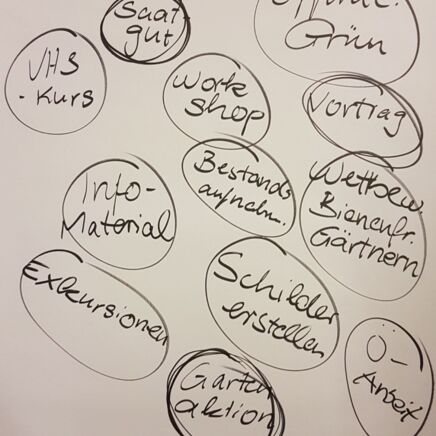 Saat-
gut
Grün
VHS
-Kurs
Work
shop
Vortrag
Bestands
aufnahm.
Wettbew.
Bienenfr.
Gärtnern
Info-
Material
Exkursionen
Schilder
erstellen
Ö-
Arbeit
Garten
aktion